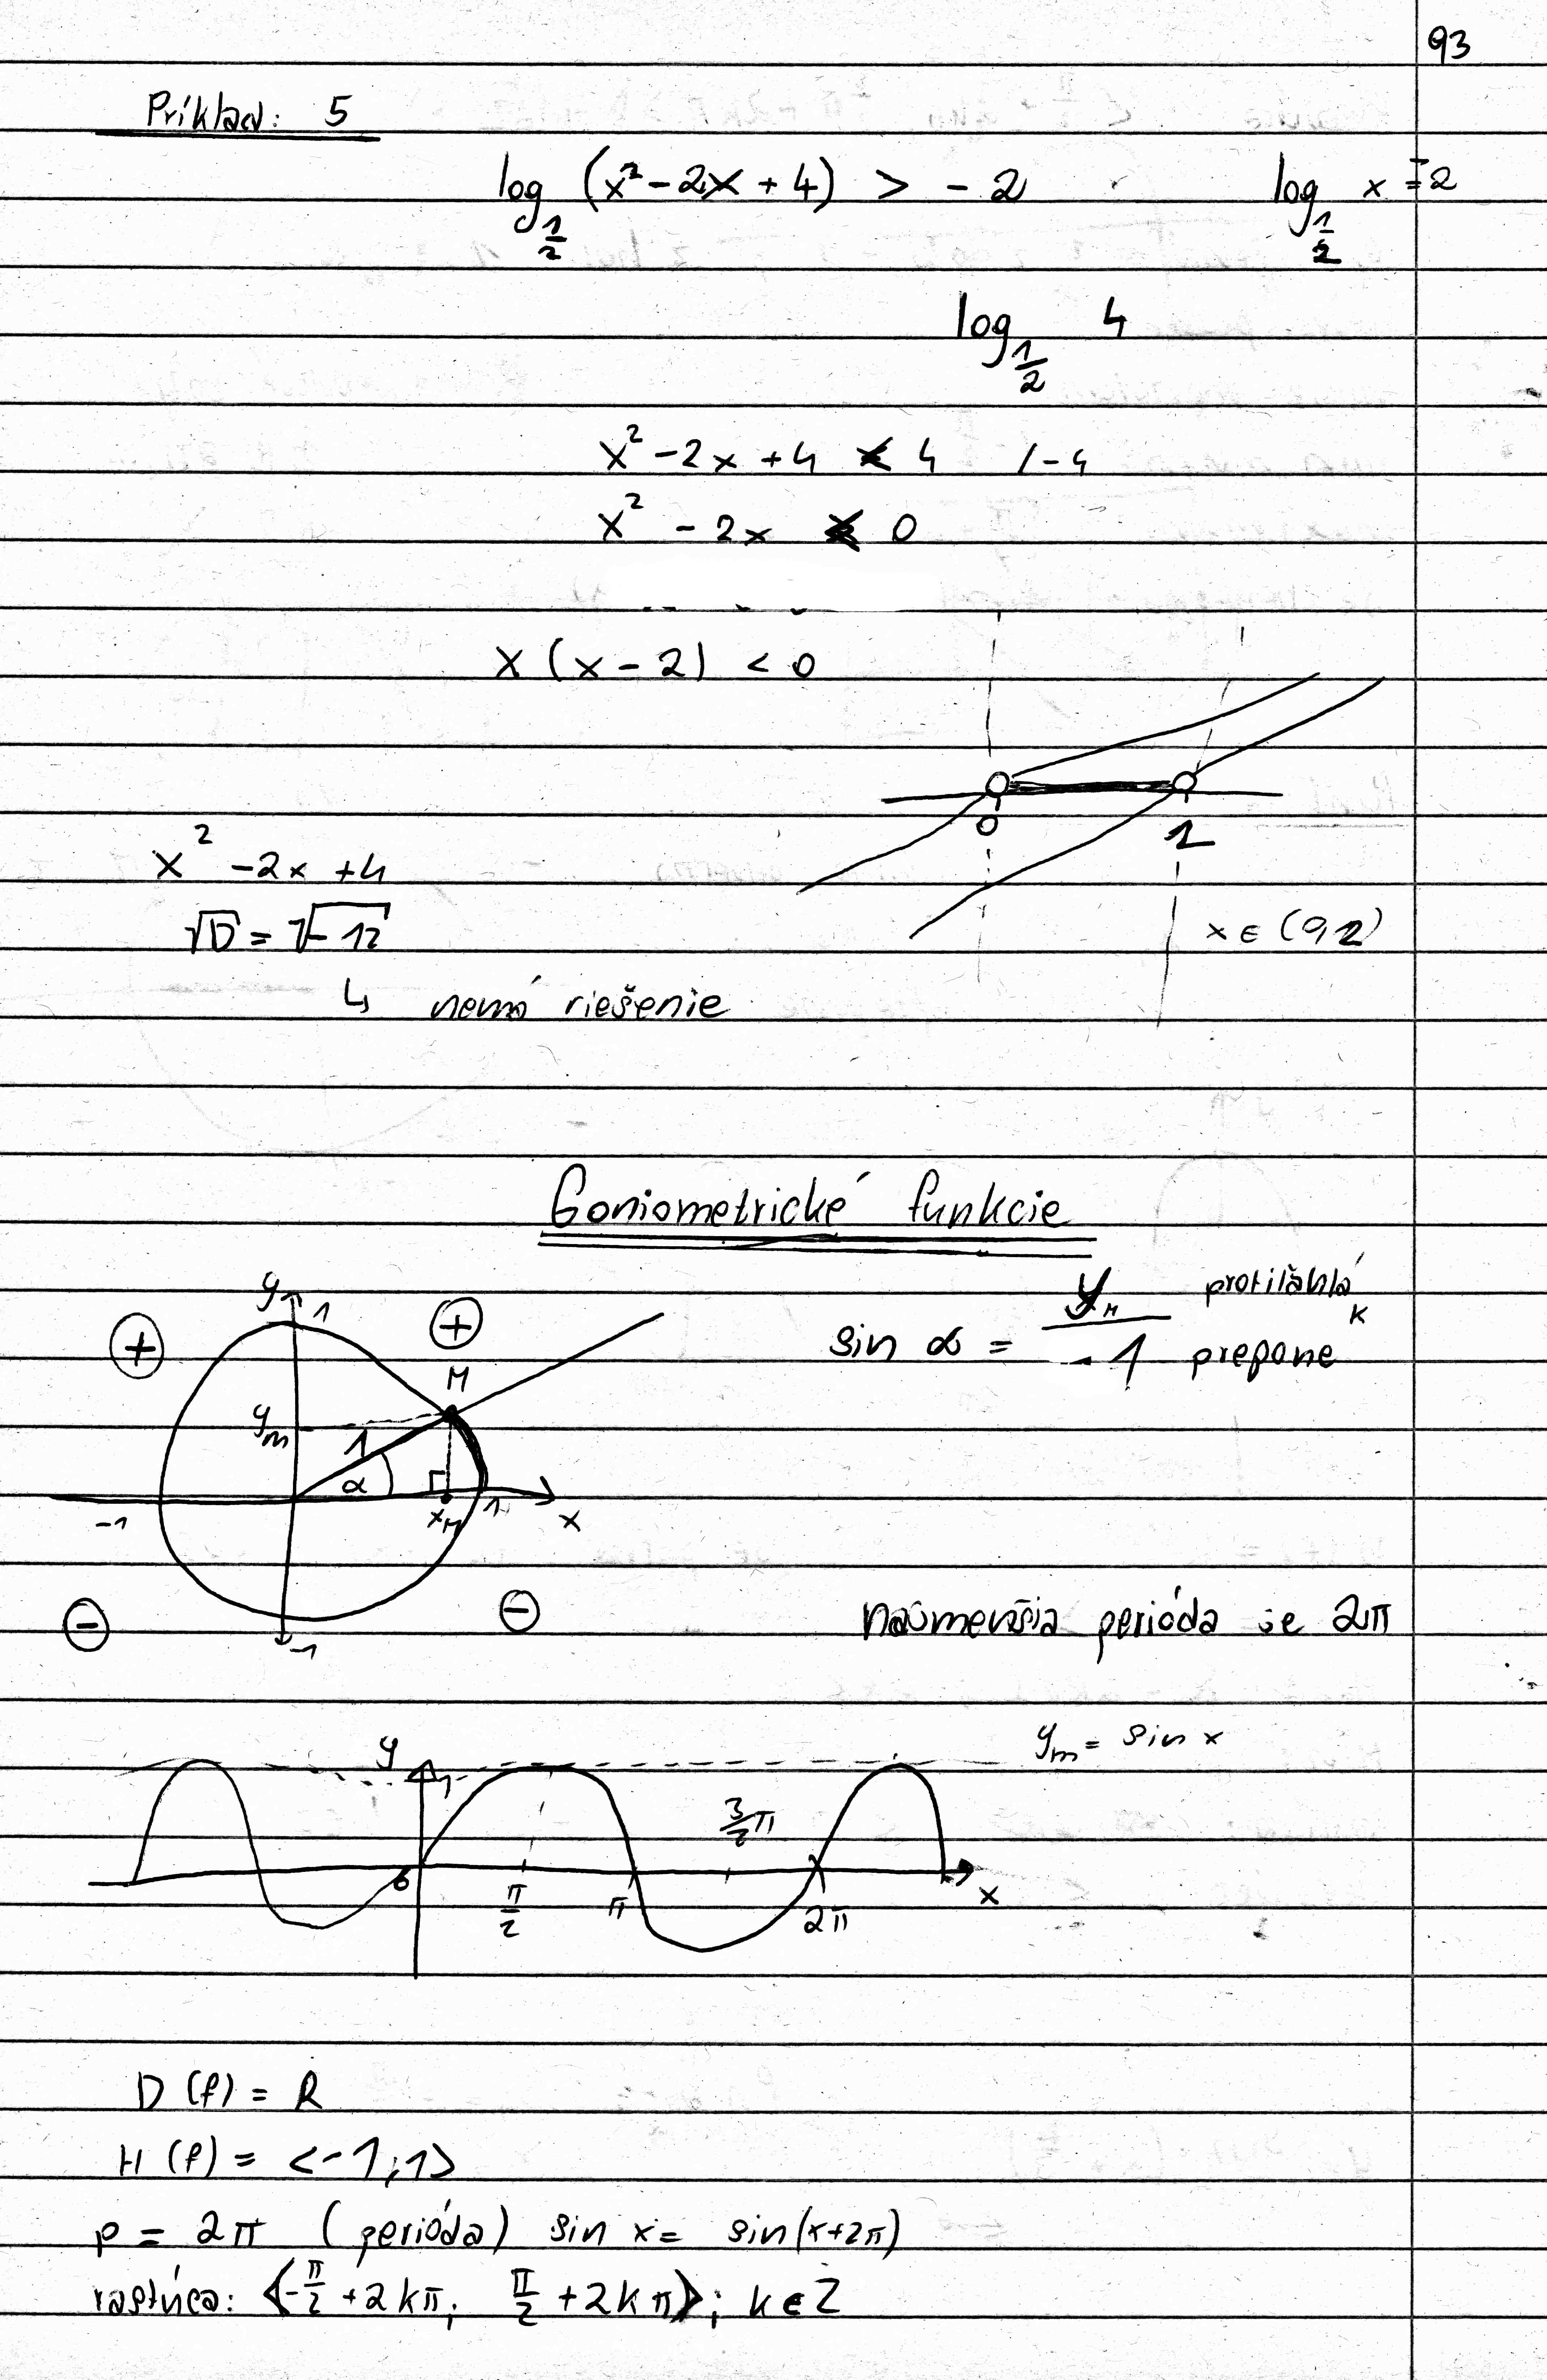 93
Príklad: 5
log_{1/2} (x² - 2x + 4) > - 2    log_{1/2} x = -2
log_{1/2} 4
x² - 2x + 4 < 4   / - 4
x² - 2x < 0
x (x - 2) < 0
0 2
x² - 2x + 4
√D = √-12
x ∈ (0, 2)
↳ nemá riešenie
Goniometrické funkcie
y 1
+ +
sin α = y_M / 1   protiľahlá k prepone
M
y_m 1 α
-1 x_M 1 x
- -
-1
najmenšia perióda je 2π
y_m = sin x
y 1
3/2 π
0 π/2 π 2π x
D (f) = R
H (f) = <-1; 1>
p = 2π (perióda) sin x = sin(x+2π)
rastúca: <-π/2 + 2kπ; π/2 + 2kπ>; k ∈ Z